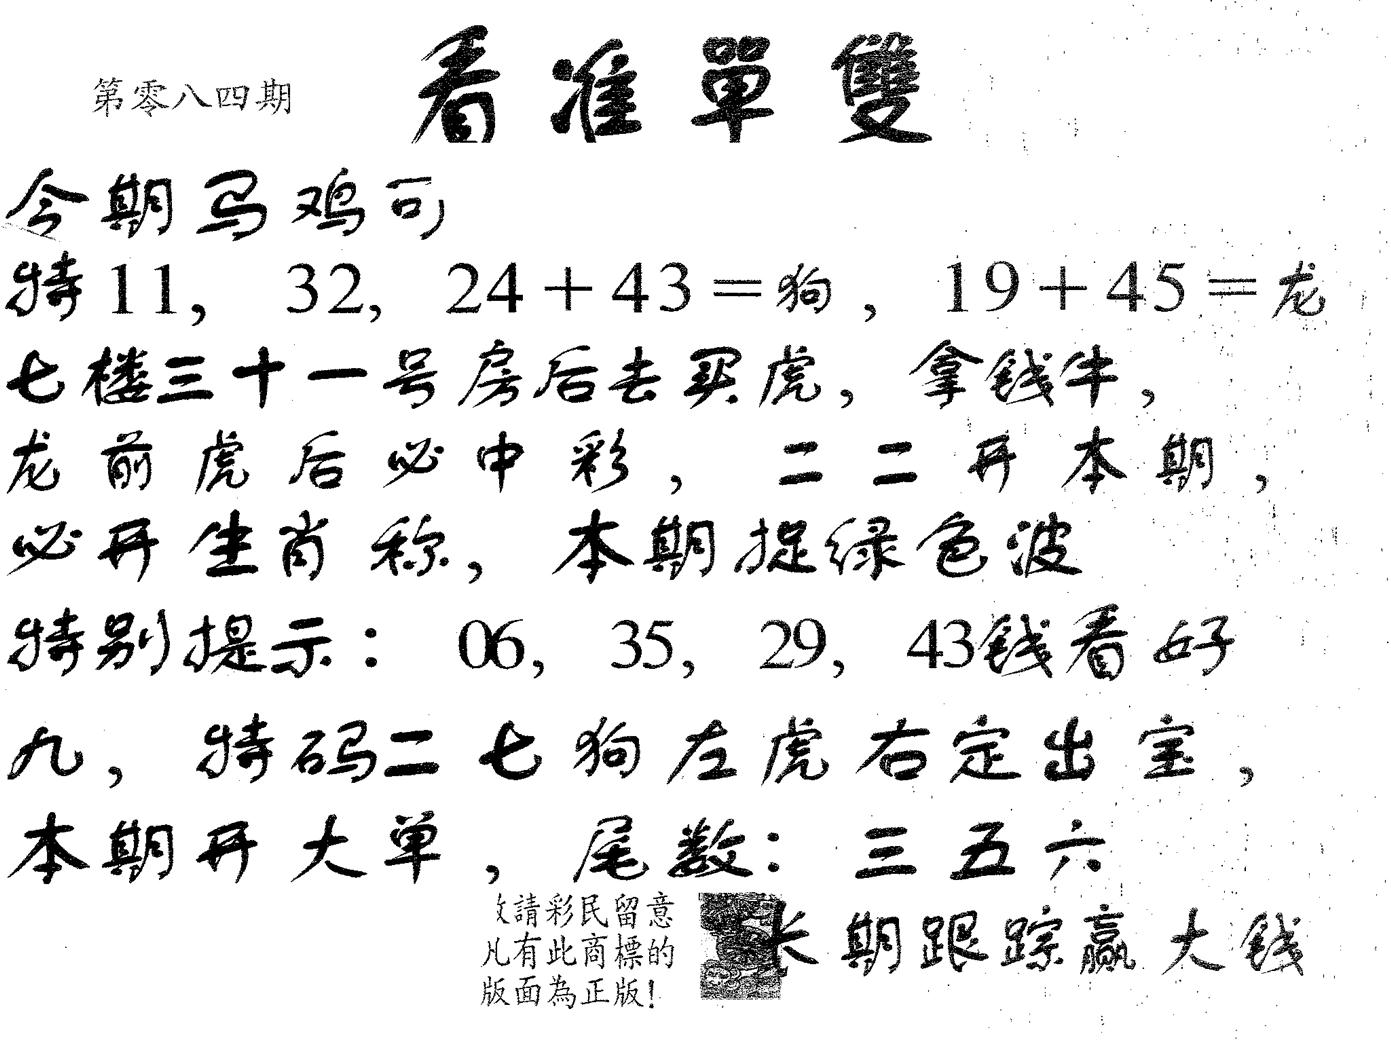 第零八四期
看准單雙
今期马鸡可
特11, 32, 24+43=狗, 19+45=龙
七楼三十一号房后去买虎, 拿钱牛,
龙前虎后必中彩, 二二开本期,
必开生肖称, 本期捉绿色波
特别提示: 06, 35, 29, 43钱看好
九, 特码二七狗左虎右定出宝,
本期开大单, 尾数: 三五六
請彩民留意
凡有此商標的
版面為正版!
长期跟踪赢大钱